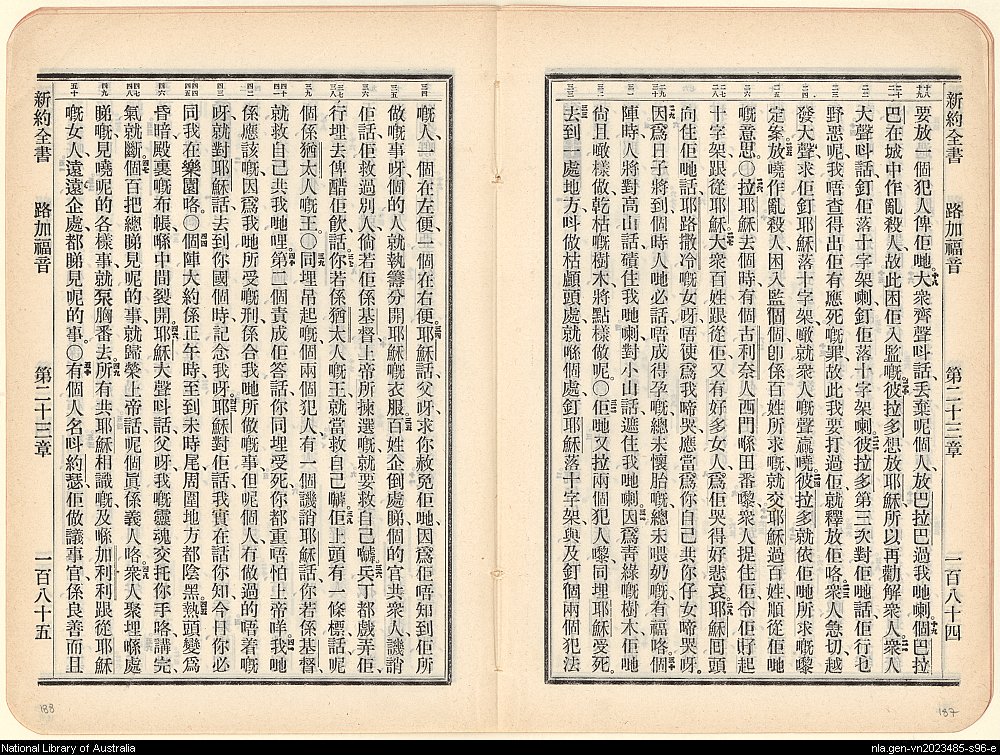 新約全書 路加福音 第二十三章 一百八十四
要放一個犯人俾佢哋大衆齊聲呌話丢棄呢個人放巴拉巴過我哋喇個巴拉
巴在城中作亂殺人故此困佢入監嘅彼拉多想放耶穌所以再勸解衆人衆人
大聲呌話釘佢落十字架喇釘佢落十字架喇彼拉多第三次對佢哋話佢行乜
野惡呢我唔查得出佢有應死嘅罪故此我要打過佢就釋放佢咯衆人急切越
發大聲求佢釘耶穌落十字架噉就衆人嘅聲贏嘵彼拉多就依佢哋所求嘅嚟
定案放嘵作亂殺人困入監個個卽係百姓所求嘅就交耶穌過百姓順從佢哋
嘅意思〇拉耶穌去個時有個古利奈人西門喺田畓嚟衆人捉住佢令佢孭起
十字架跟從耶穌大衆百姓跟從佢又有好多女人爲佢哭得好悲哀耶穌囘頭
向住佢哋話耶路撒冷嘅女呀唔使爲我啼哭應當爲你自己共你仔女啼哭呀
因爲日子將到個時人哋必話唔成得孕嘅總未懷胎嘅總未喂奶嘅有福咯個
陣時人將對高山話磧住我哋喇對小山話遮住我哋喇因爲青綠嘅樹木佢哋
尙且噉樣做乾枯嘅樹木將點樣做呢〇佢哋又拉兩個犯人嚟同埋耶穌受死
去到一處地方呌做枯顱頭處就喺個處釘耶穌落十字架與及釘個兩個犯法
新約全書 路加福音 第二十三章 一百八十五
嘅人一個在左便一個在右便耶穌話父呀求你赦免佢哋因爲佢唔知到佢所
做嘅事呀個的人就執籌分開耶穌嘅衣服百姓企倒處睇個的官共衆人譏誚
佢話佢救過別人倘若佢係基督上帝所揀選嘅就要救自己嚹兵丁都戲弄佢
行埋去俾醋佢飮話你若係猶太人嘅王就當救自己嚹佢上頭有一條標話呢
個係猶太人嘅王〇同埋吊起嘅個兩個犯人有一個譏誚耶穌話你若係基督
就救自己共我哋哩第二個責成佢答話你同埋受死你都重唔怕上帝咩我哋
係應該嘅因爲我哋所受嘅刑係合我哋所做嘅事但呢個人有做過的唔着嘅
呀就對耶穌話去到你國個時記念我呀耶穌對佢話我實在話你知今日你必
同我在樂園咯〇個陣大約係正午時至到未時尾周圍地方都陰黑熱頭變爲
昏暗殿裏嘅布帳喺中間裂開耶穌大聲呌話父呀我嘅靈魂交托你手咯講完
氣就斷個百把總睇見呢的事就歸榮上帝話呢個眞係義人咯衆人聚埋喺處
睇嘅見嘵呢的各樣事就泵胸番去所有共耶穌相識嘅及喺加利利跟從耶穌
嘅女人遠遠企處都睇見呢的事〇有個人名呌約瑟佢做議事官係良善而且
188
187
National Library of Australia
nla.gen-vn2023485-s96-e